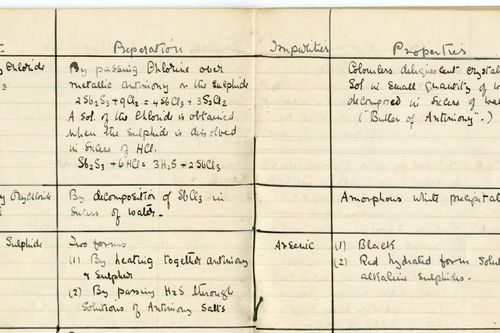 Preparation
Impurities
Properties
Chloride
3
By passing Chlorine over
metallic antimony or the Sulphide
2Sb2S3+9Cl2 = 4SbCl3 + 3S2Cl2
A Sol. of the Chloride is obtained
when the Sulphide is dissolved
in Excess of HCl.
Sb2S3 + 6HCl = 3H2S + 2SbCl3
Colourless deliquescent crystal
Sol in Small quantity of
decomposed in Excess of
("Butter of Antimony".)
OxyChloride
By decomposition of SbCl3 in
Excess of water.
Amorphous white
Sulphide
Two forms
(1) By heating together antimony
& Sulphur
(2) By passing H2S through
Solutions of Antimony Salts
Arsenic
(1) Black
(2) Red hydrated form
alkaline Sulphides.